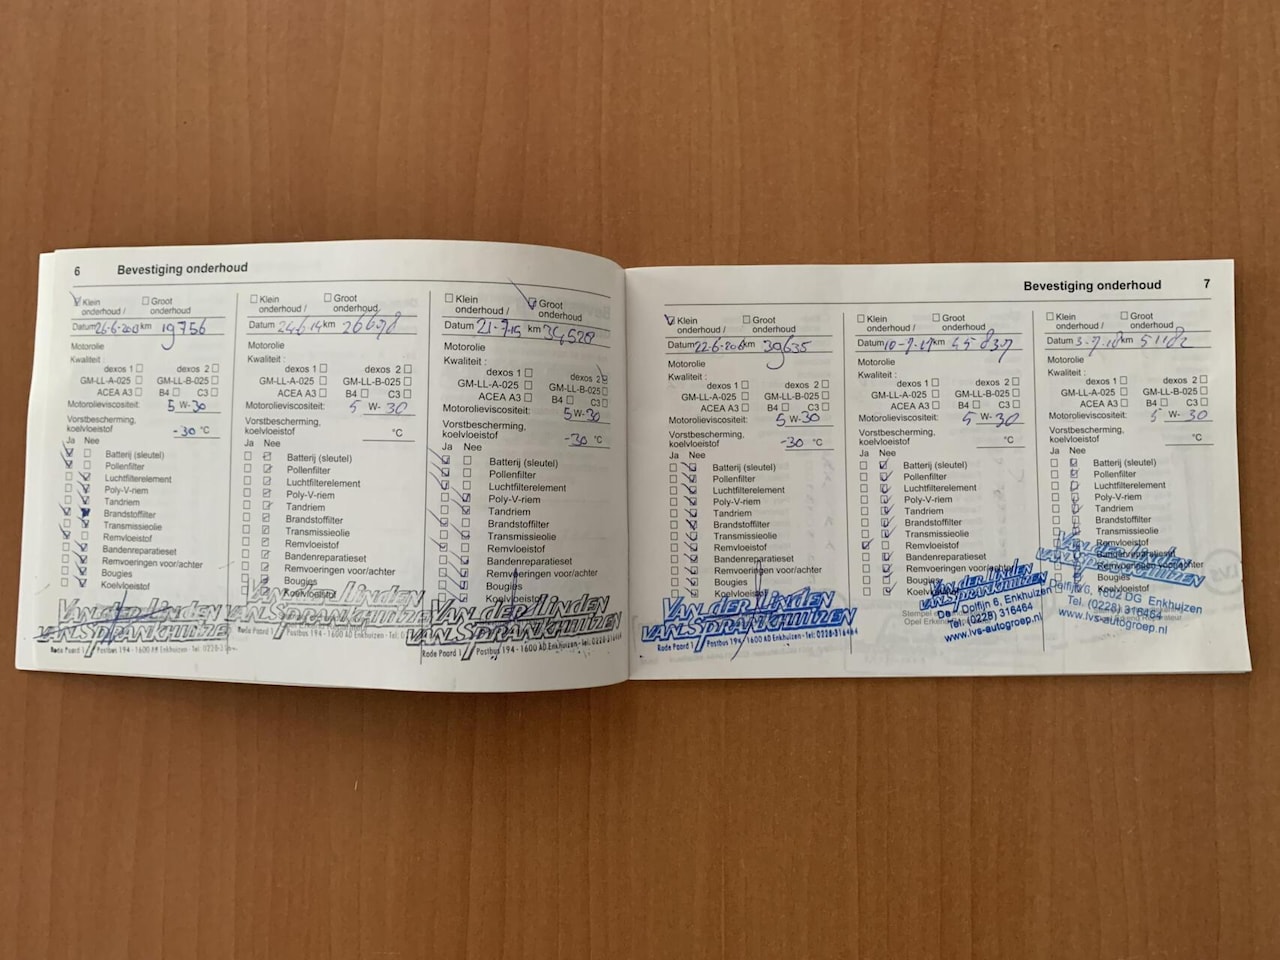 6 Bevestiging onderhoud
Klein onderhoud /
Groot onderhoud
Datum 26-6-2013 km 19756
Motorolie
Kwaliteit :
dexos 1 dexos 2
GM-LL-A-025 GM-LL-B-025
ACEA A3 B4 C3
Motorolieviscositeit: 5 W-30
Vorstbescherming,
koelvloeistof -30 °C
Ja Nee
Batterij (sleutel)
Pollenfilter
Luchtfilterelement
Poly-V-riem
Tandriem
Brandstoffilter
Transmissieolie
Remvloeistof
Bandenreparatieset
Remvoeringen voor/achter
Bougies
Koelvloeistof
Van der Linden
van Sprankhuizen
Rode Paard 1 Postbus 194 - 1600 AD Enkhuizen - Tel. 0228-3
Klein onderhoud /
Groot onderhoud
Datum 24-6-14 km 26698
Motorolie
Kwaliteit :
dexos 1 dexos 2
GM-LL-A-025 GM-LL-B-025
ACEA A3 B4 C3
Motorolieviscositeit: 5 W-30
Vorstbescherming,
koelvloeistof °C
Ja Nee
Batterij (sleutel)
Pollenfilter
Luchtfilterelement
Poly-V-riem
Tandriem
Brandstoffilter
Transmissieolie
Remvloeistof
Bandenreparatieset
Remvoeringen voor/achter
Bougies
Koelvloeistof
Van der Linden
van Sprankhuizen
Rode Paard 1 Postbus 194 - 1600 AD Enkhuizen - Tel.
Klein onderhoud /
Groot onderhoud
Datum 21-7-15 km 34528
Motorolie
Kwaliteit :
dexos 1 dexos 2
GM-LL-A-025 GM-LL-B-025
ACEA A3 B4 C3
Motorolieviscositeit: 5 W-30
Vorstbescherming,
koelvloeistof -30 °C
Ja Nee
Batterij (sleutel)
Pollenfilter
Luchtfilterelement
Poly-V-riem
Tandriem
Brandstoffilter
Transmissieolie
Remvloeistof
Bandenreparatieset
Remvoeringen voor/achter
Bougies
Koelvloeistof
Van der Linden
van Sprankhuizen
Rode Paard 1 Postbus 194 - 1600 AD Enkhuizen - Tel: 0228-316464
Bevestiging onderhoud 7
Klein onderhoud /
Groot onderhoud
Datum 22-6-2016 km 39635
Motorolie
Kwaliteit :
dexos 1 dexos 2
GM-LL-A-025 GM-LL-B-025
ACEA A3 B4 C3
Motorolieviscositeit: 5 W-30
Vorstbescherming,
koelvloeistof -30 °C
Ja Nee
Batterij (sleutel)
Pollenfilter
Luchtfilterelement
Poly-V-riem
Tandriem
Brandstoffilter
Transmissieolie
Remvloeistof
Bandenreparatieset
Remvoeringen voor/achter
Bougies
Koelvloeistof
Van der Linden
van Sprankhuizen
Rode Paard 1 Postbus 194 - 1600 AD Enkhuizen - Tel: 0228-316464
Klein onderhoud /
Groot onderhoud
Datum 10-7-17 km 45837
Motorolie
Kwaliteit :
dexos 1 dexos 2
GM-LL-A-025 GM-LL-B-025
ACEA A3 B4 C3
Motorolieviscositeit: 5 W-30
Vorstbescherming,
koelvloeistof °C
Ja Nee
Batterij (sleutel)
Pollenfilter
Luchtfilterelement
Poly-V-riem
Tandriem
Brandstoffilter
Transmissieolie
Remvloeistof
Bandenreparatieset
Remvoeringen voor/achter
Bougies
Koelvloeistof
Stempel
Opel Erkend
Van der Linden
van Sprankhuizen
De Dolfijn 6, Enkhuizen
Tel. (0228) 316464
www.lvs-autogroep.nl
Klein onderhoud /
Groot onderhoud
Datum 3-7-18 km 51182
Motorolie
Kwaliteit :
dexos 1 dexos 2
GM-LL-A-025 GM-LL-B-025
ACEA A3 B4 C3
Motorolieviscositeit: 5 W-30
Vorstbescherming,
koelvloeistof °C
Ja Nee
Batterij (sleutel)
Pollenfilter
Luchtfilterelement
Poly-V-riem
Tandriem
Brandstoffilter
Transmissieolie
Remvloeistof
Bandenreparatieset
Remvoeringen voor/achter
Bougies
Koelvloeistof
Van der Linden
van Sprankhuizen
Dolfijn 6, 1602 DG Enkhuizen
Tel. (0228) 316464
www.lvs-autogroep.nl